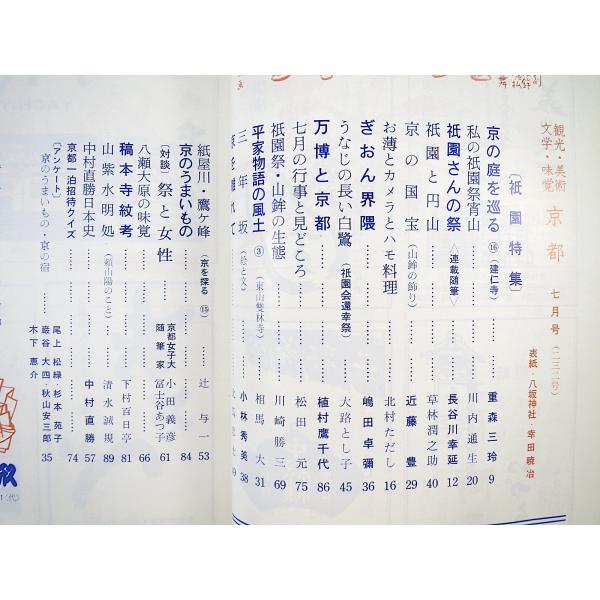 観光・美術
文学・味覚
京都 七月号(二三二号)
表紙・八坂神社・幸田暁冶
〔祇園特集〕
京の庭を巡る⑯(建仁寺)……重森三玲 9
私の祇園祭宵山……川内通生 20
祇園さんの祭〈連載随筆〉……長谷川幸延 12
祇園と円山……草林潤之助 40
京の国宝(山鉾の飾り)……近藤豊 29
お薄とカメラとハモ料理……北村ただし 16
ぎおん界隈……嶋田卓彌 36
うなじの長い白鷺(祇園会還幸祭)……大路とし子 45
万博と京都……植村鷹千代 86
七月の行事と見どころ……松田元 75
祇園祭・山鉾の生態……川崎勝三 69
平家物語の風土③(東山雙林寺)……相馬大 31
三年坂(絵と文)……小林秀美 38
紙屋川・鷹ヶ峰(京を探る⑮)……辻与一 53
京のうまいもの…… 84
〔対談〕祭と女性……京都女子大 小田義彦
随筆家 冨士谷あつ子 61
八瀬大原の味覚…… 66
稿本寺紋考……下村百日亭 81
山紫水明処(頼山陽のこと)……清水誠規 89
中村直勝日本史……中村直勝 57
京都一泊招待クイズ…… 74
〔アンケート〕
京のうまいもの・京の宿……
尾上松緑・杉本苑子
巌谷大四・秋山安三郎
木下恵介 35